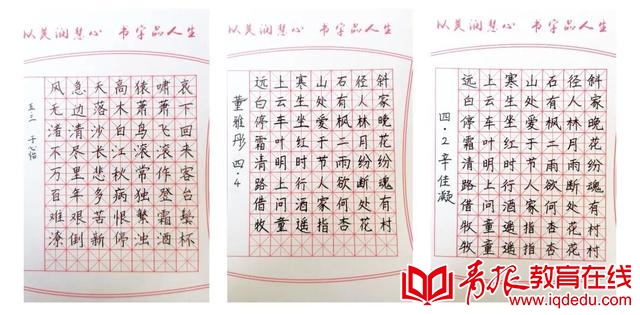 以美润慧心 书写品人生
风急天高猿啸哀
无边落木萧萧下
渚清沙白鸟飞回
不尽长江滚滚来
万里悲秋常作客
百年多病独登台
难艰苦恨繁霜鬓
潦倒新停浊酒杯
五三 于心怡
以美润慧心 书写品人生
远上寒山石径斜
白云生处有人家
停车坐爱枫林晚
霜叶红于二月花
清明时节雨纷纷
路上行人欲断魂
借问酒家何处有
牧童遥指杏花村
董雅彤 四.4
以美润慧心 书写品人生
远上寒山石径斜
白云生处有人家
停车坐爱枫林晚
霜叶红于二月花
清明时节雨纷纷
路上行人欲断魂
借问酒家何处有
牧童遥指杏花村
四.2 辛佳凝
青报教育在线
www.iqdedu.com